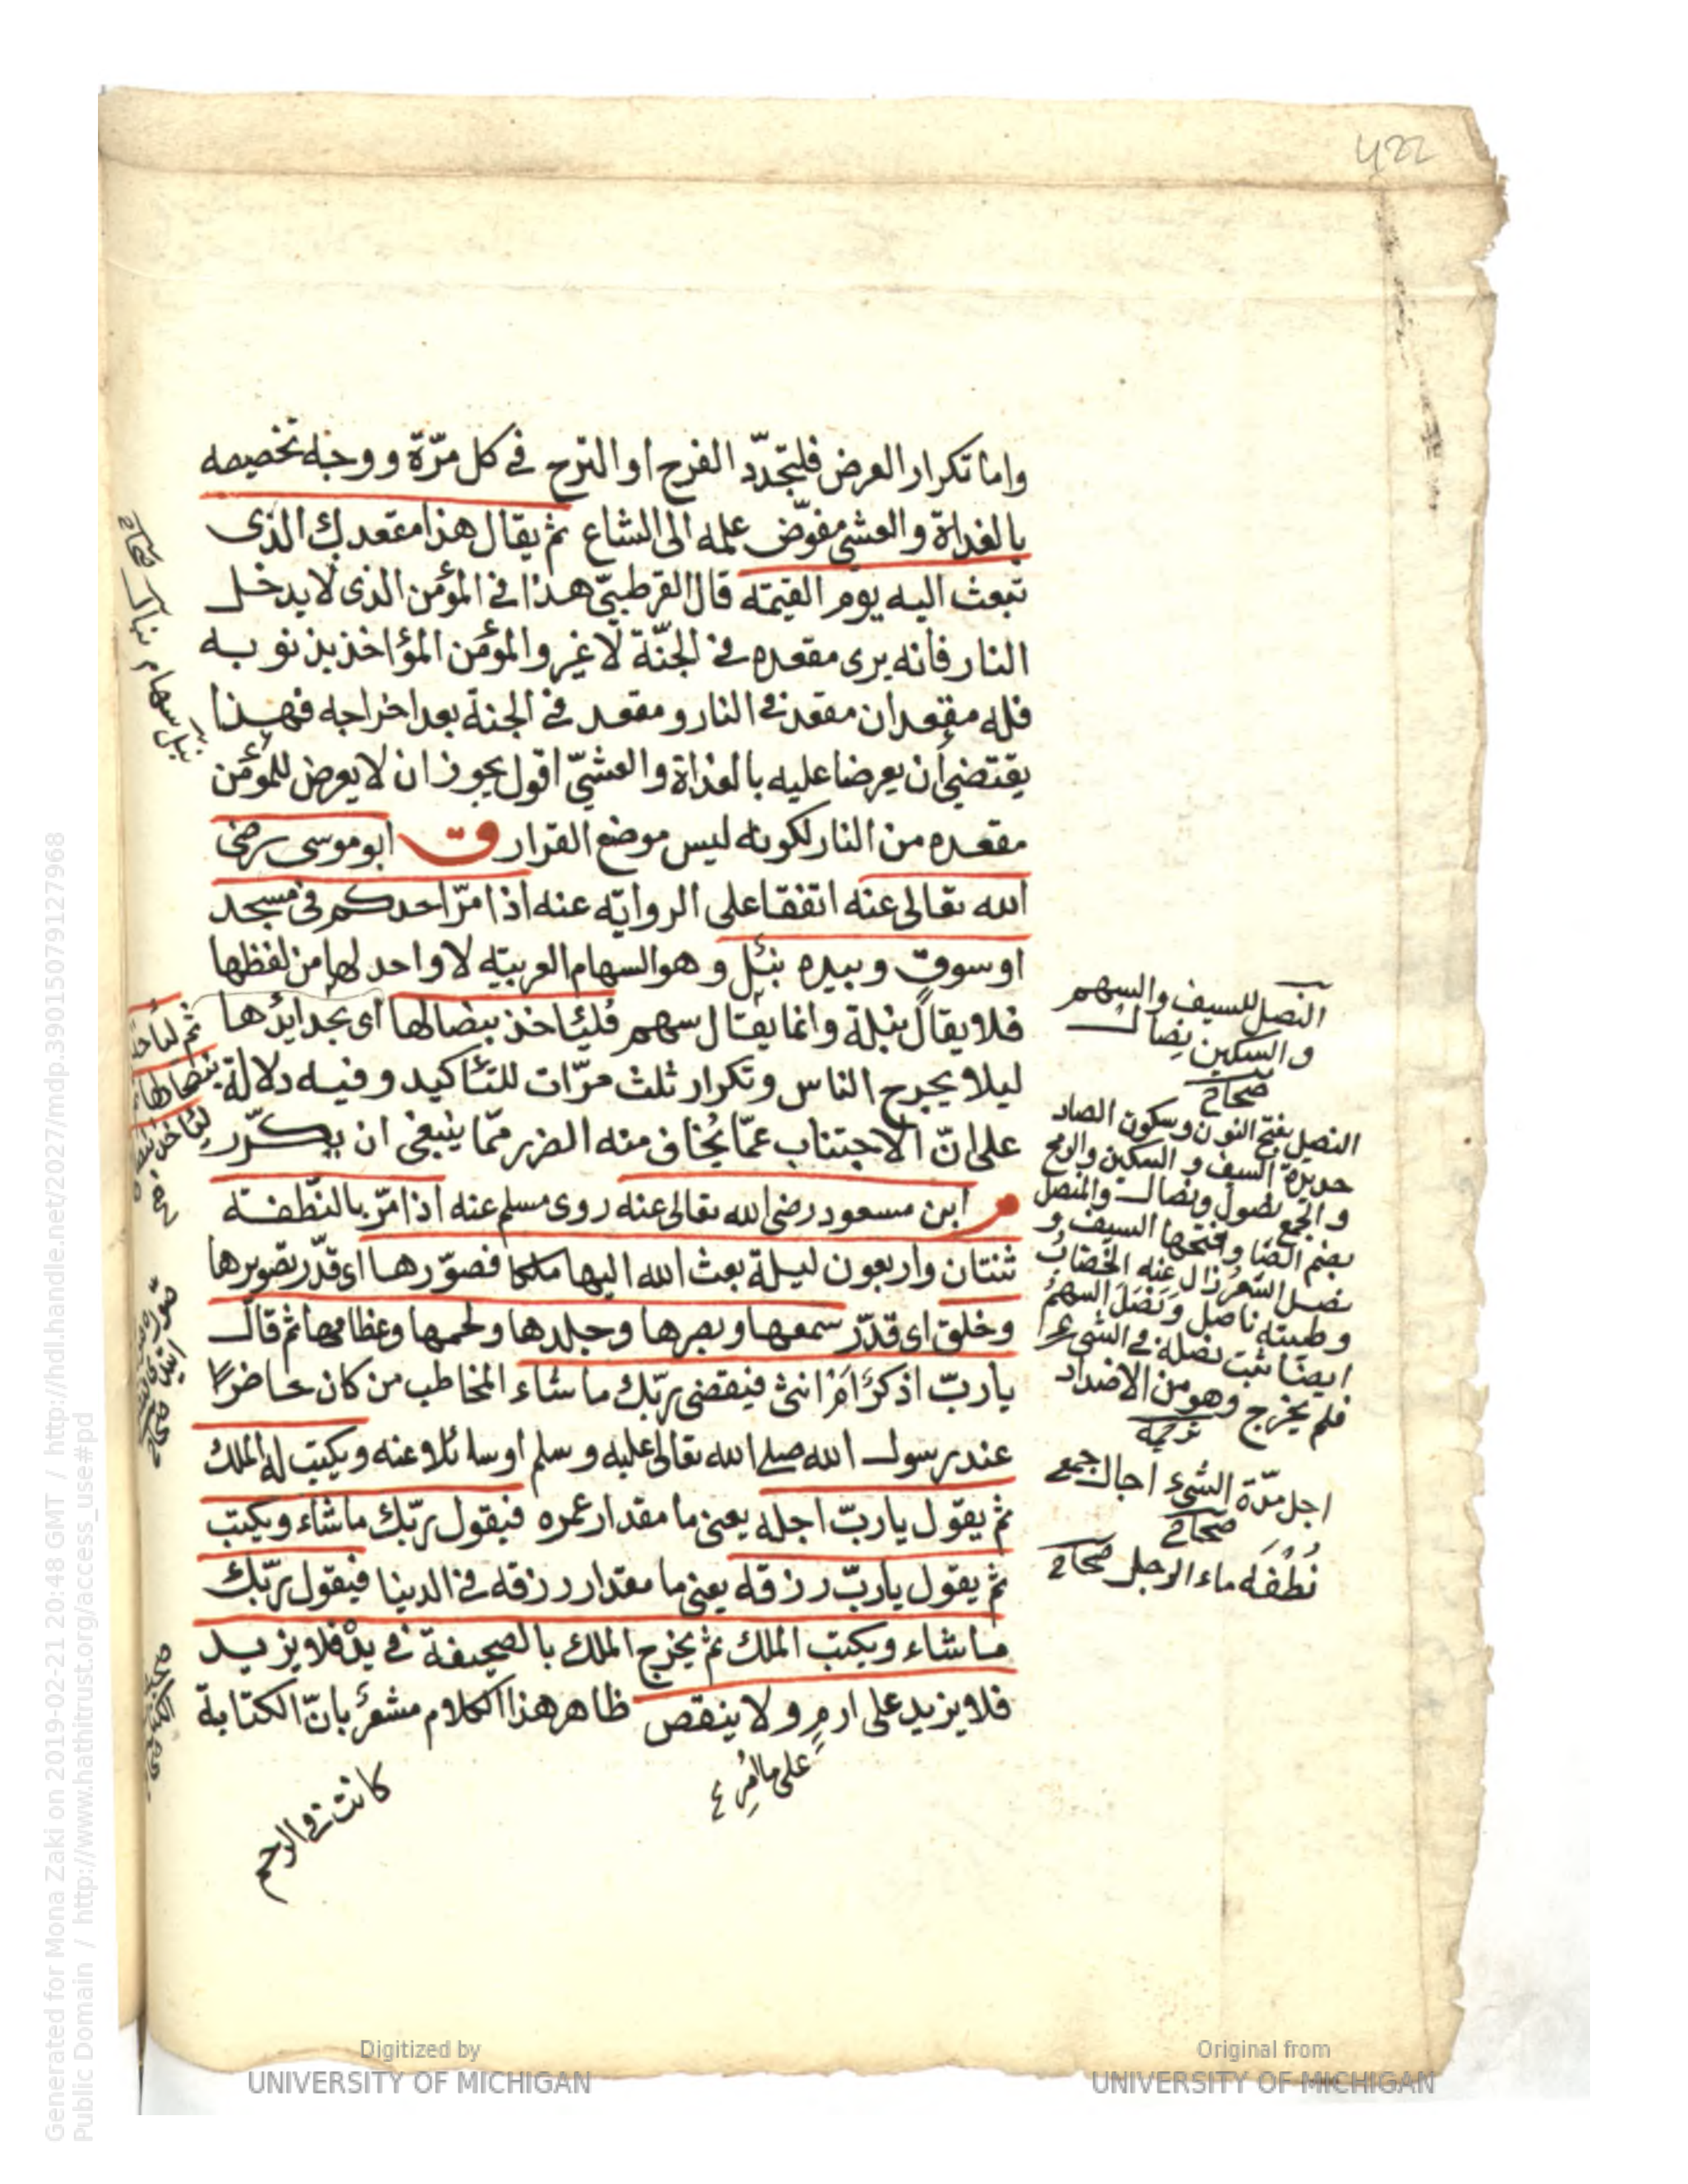 422
واما تكرار العرض فليتجدّد الفرح او الترح في كل مرّة ووجه تخصيصه
بالغداة والعشي مفوّض علمه الى الشاع ثم يقال هذا مقعدك الذى
تبعث اليه يوم القيمة قال القرطبيّ هذا في المؤمن الذى لا يدخل
النار فانه يرى مقعده في الجنّة لا غير والمؤمن المؤاخذ بذنوبه
فله مقعدان مقعد في النار ومقعد في الجنة بعد اخراجه فهذا
يقتضي ان يعرضا عليه بالغداة والعشيّ اقول يجوز ان لا يعرض للمؤمن
مقعده من النار لكونه ليس موضع القرار ق ابو موسى رضى
الله تعالى عنه اتفقا على الرواية عنه اذا مرّ احدكم في مسجد
او سوق وبيده نبل وهو السهام العربية لا واحد لها من لفظها
فلا يقال نبلة وانما يقال سهم فليأخذ بنصالها اى بحدايدها
ليلا يجرح الناس وتكرار ثلث مرّات للتأكيد وفيه دلالة
على انّ الاجتناب عمّا يُخاف منه الضرر ممّا ينبغى ان يكرّر
م ابن مسعود رضى الله تعالى عنه روى مسلم عنه اذا مرّ بالنّطفة
ثنتان واربعون ليلة بعث الله اليها ملكا فصوّرها اى قدّر تصويرها
وخلق اى قدّر سمعها وبصرها وجلدها ولحمها وعظامها ثم قال
يا ربّ اذكرٌ ام انثى فيقضى ربّك ما شاء المخاطب من كان حاضرًا
عند رسول الله صلى الله تعالى عليه وسلم او سائلا عنه ويكتب له الملك
ثم يقول يا ربّ اجله يعنى ما مقدار عمره فيقول ربّك ما شاء ويكتب
ثم يقول يا ربّ رزقه يعنى ما مقدار رزقه في الدينا فيقول ربّك
ما شاء ويكتب الملك ثم يخرج الملك بالصحيفة في يده فلا يزيد
فلا يزيد على ارم ولا ينقص ظاهر هذا الكلام مشعر بانّ الكتابة
على ما امر
كانت في الرحم
النصل للسيف والسهم
والسكين نصال
صحاح
النصل بفتح النون وسكون الصاد
حديدة السيف و السكين والرمح
و الجمع نصول ونصال والمنصل
بضم الصا وفتحها السيف و
نصل الشعر زال عنه الخضاب
ونصل السهم
ايضا ثبت نصله في الشئ
فلم يخرج وهو من الاضداد
اجل مدّة الشيء اجال جمع
صحاح
نُطْفَه ماء الرجل صحاح
نبل سهام نبال صحاح
Generated for Mona Zaki on 2019-02-21 20:48 GMT / http://hdl.handle.net/2027/mdp.39015079127968
Public Domain / http://www.hathitrust.org/access_use#pd
Digitized by
UNIVERSITY OF MICHIGAN
Original from
UNIVERSITY OF MICHIGAN